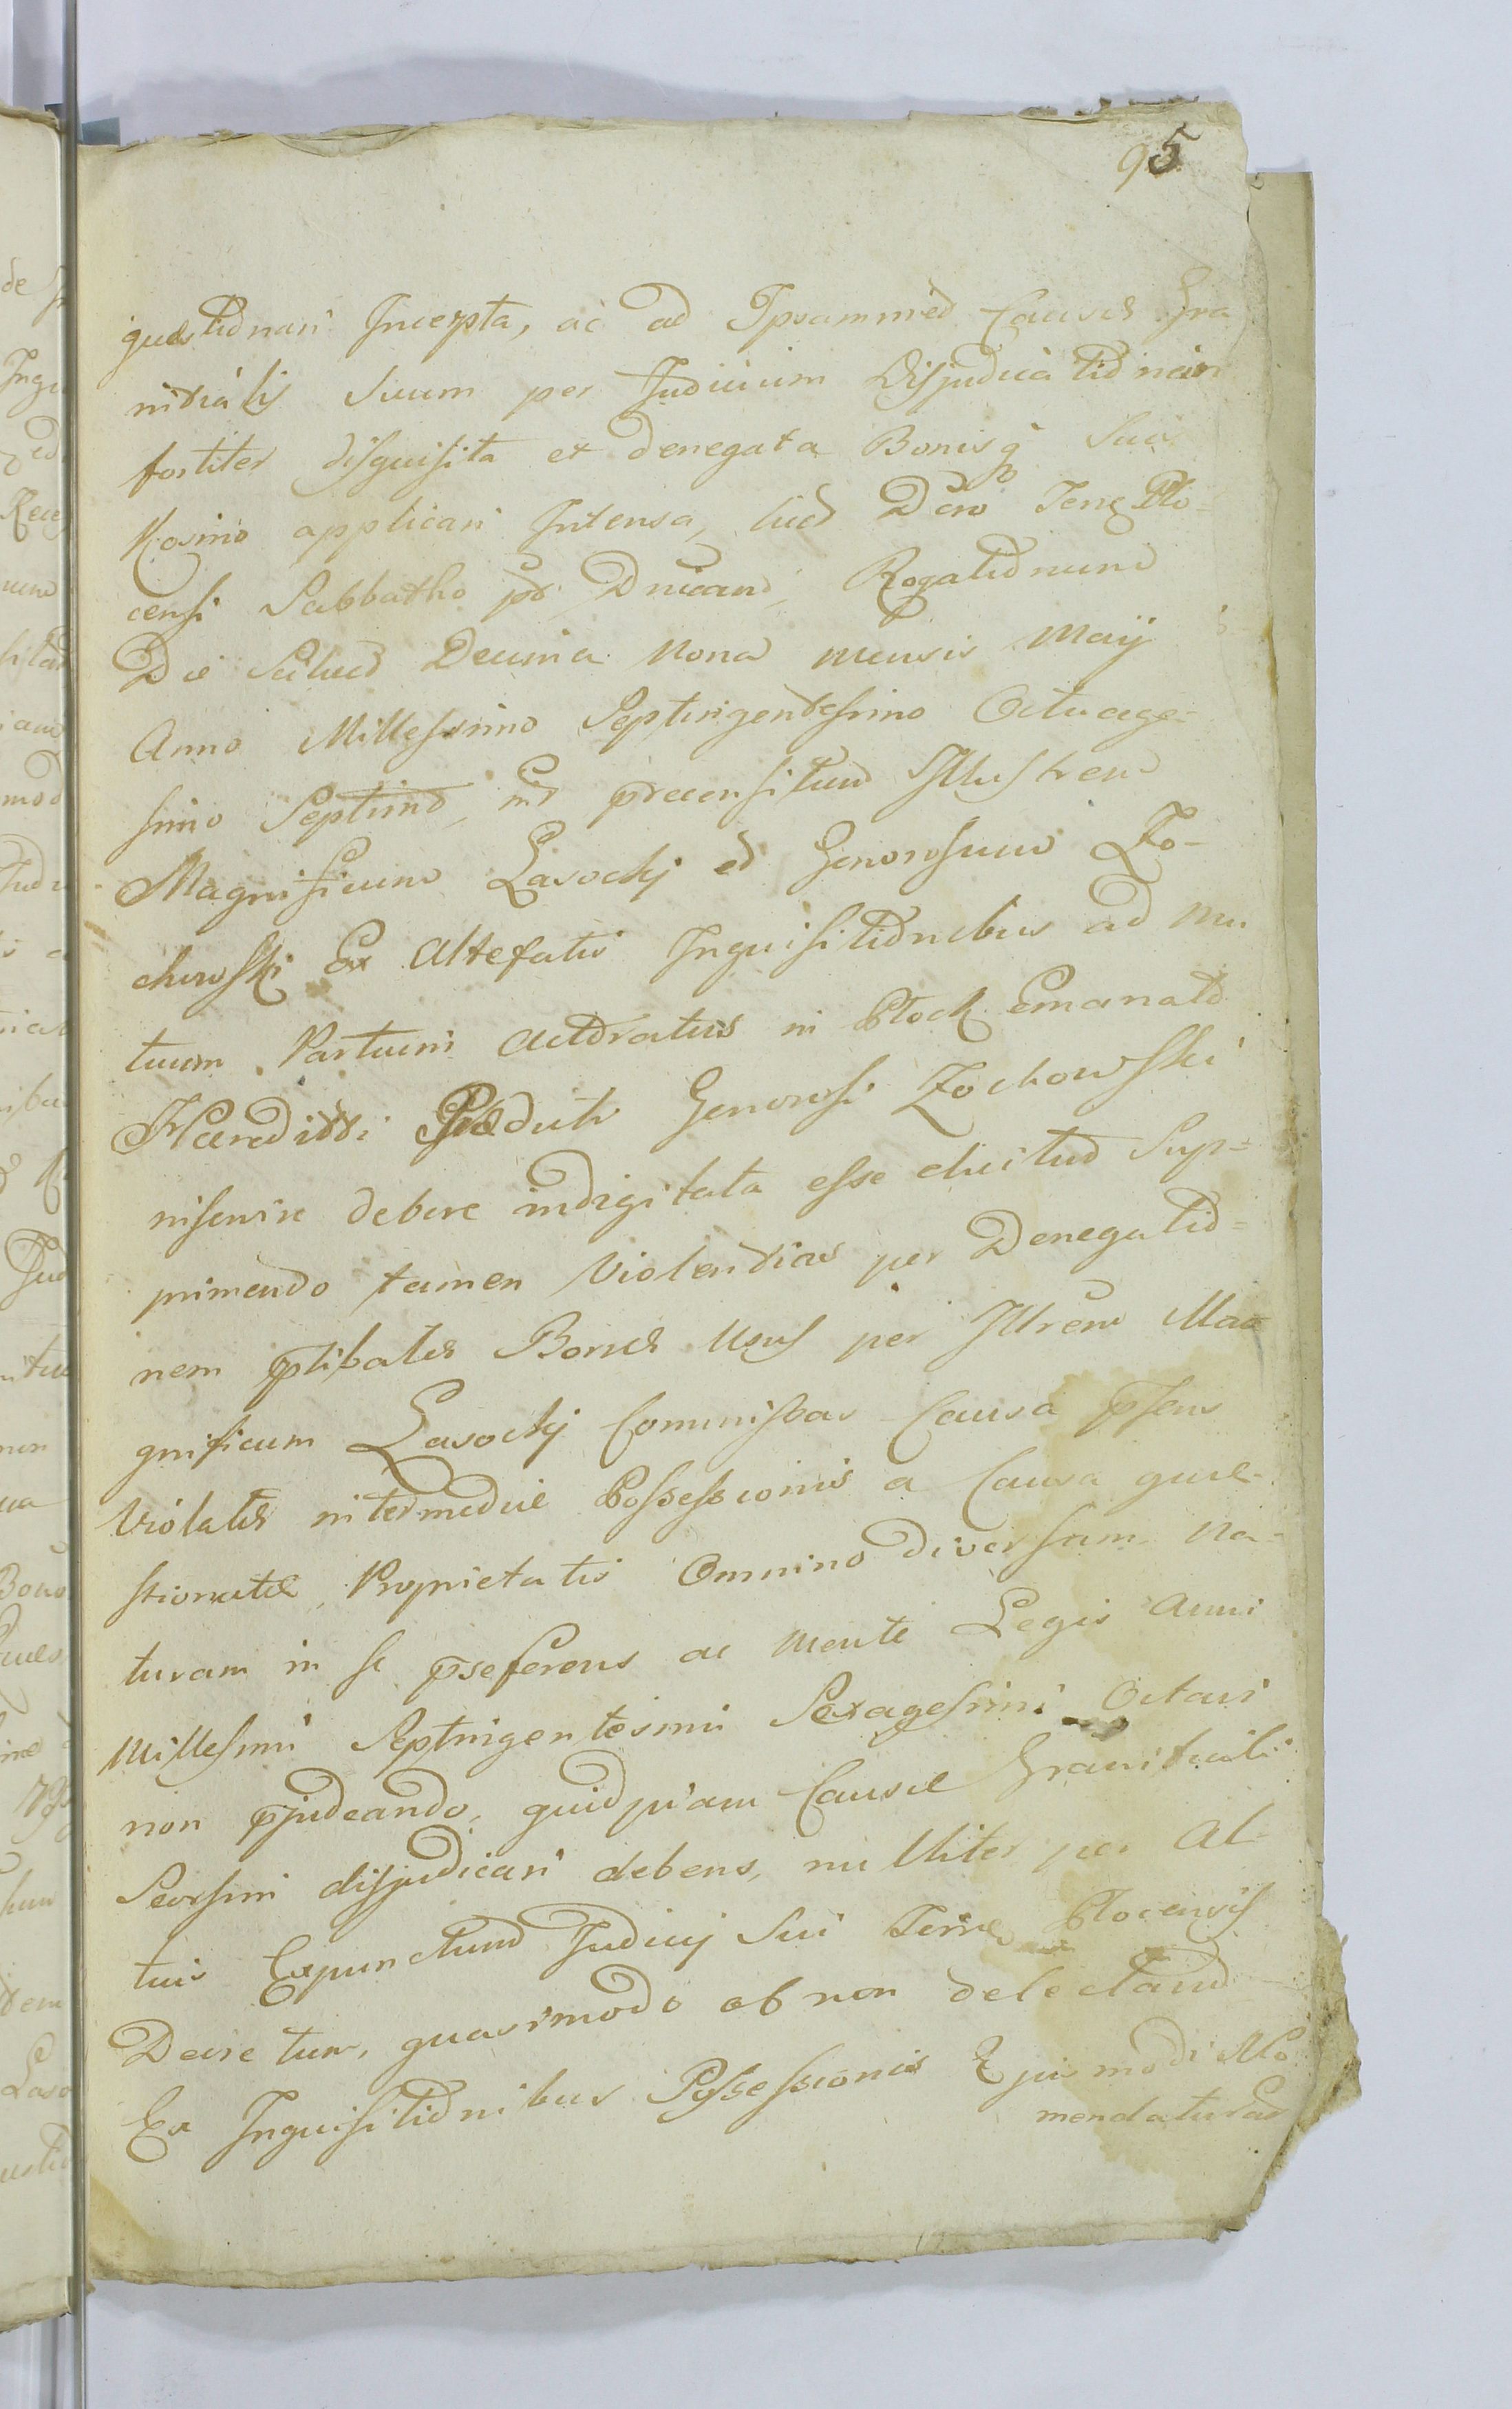 95
quaestionari Incepta, ac ad Ipsammet Causae Gra
nitialis Suum per Judicium Disjudicationem
fortiter disquisita et denegata Bonisq Suis
Kosino applicari Intensa, licet Dcro Terrae Plo-
censi Sabbatho pt Dnicam Rogationum
Die Scilicet Decima Nona Mensis Maij
Anno Millessimo Septingentesimo Octuage-
simo Septimo, int praecensitum Illustrem
Magnificum Lasockj et Generosum Zo-
chowski Ex Altefatis Inquisitionibus ad mu
tuum Partium Actoratus in Plock Emanato
Haereditti Praeducti Generosi Zochowski
inservire debere indigitata esse elicitud Sup-
primendo tamen Violentias per Denegatio-
nem ptibatis Bonis Usus per Illrem Ma
gnificum Lasockj Commissas Causa psens
Violatae intermediae Possessionis a Causa quae-
stionatae Proprietatis Omnino diversam Na-
turam in se pseferens ac Mente Legis Anni
Millesimi Septingentesimi Sexagesimi Octavi
non pjudicando, quidpiam Causae Granitiali
Seorsim disjudicari debens, nulliter per Al-
tius Expunctum Judicij Sui Terrae Plocensis
Decretum, quasimodo ob non delectam
Ex Inquisitionibus Possessionis Ejusmodi No
menclaturam